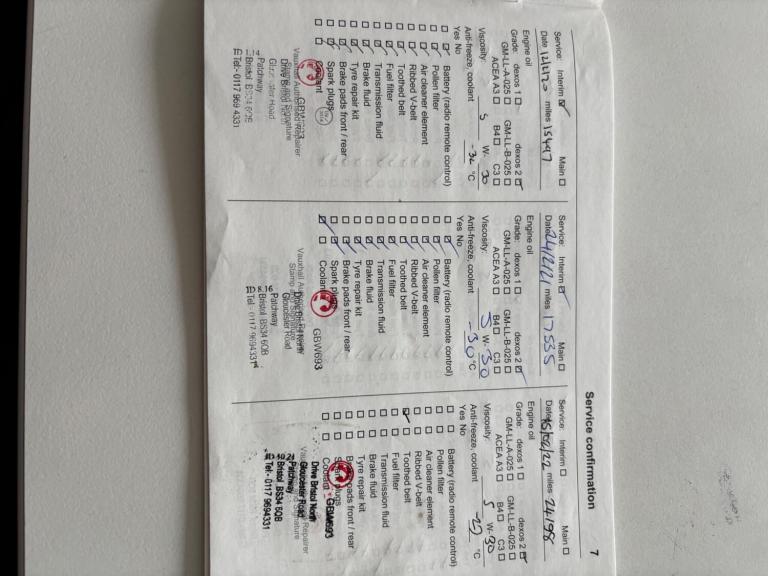 Service confirmation
7
Service: Interim ☑ Main ☐
Date 12/2/20 miles 15497
Engine oil
Grade: dexos 1 ☐ dexos 2 ☑
GM-LL-A-025 ☐ GM-LL-B-025 ☐
ACEA A3 ☐ B4 ☐ C3 ☐
Viscosity: 5 W- 30
Anti-freeze, coolant -34 °C
Yes No
Battery (radio remote control)
Pollen filter
Air cleaner element
Ribbed V-belt
Toothed belt
Fuel filter
Transmission fluid
Brake fluid
Tyre repair kit
Brake pads front / rear
Spark plugs
Coolant
Vauxhall Authorised Repairer
Stamp and Signature
Patchway
Bristol BS34 6QB
Tel:- 0117 969 4331
Service: Interim ☑ Main ☐
Date 24/2/21 miles 17535
Engine oil
Grade: dexos 1 ☐ dexos 2 ☑
GM-LL-A-025 ☐ GM-LL-B-025 ☐
ACEA A3 ☐ B4 ☐ C3 ☐
Viscosity: 5 W- 30
Anti-freeze, coolant -30 °C
Yes No
Battery (radio remote control)
Pollen filter
Air cleaner element
Ribbed V-belt
Toothed belt
Fuel filter
Transmission fluid
Brake fluid
Tyre repair kit
Brake pads front / rear
Spark plugs
Coolant
GBW693
Vauxhall Authorised Repairer
Stamp and Signature
Drive Bristol North
Gloucester Road
Patchway
Bristol BS34 6QB
Tel:- 0117 9694331
Service: Interim ☐ Main ☐
Date 15/02/22 miles 24198
Engine oil
Grade: dexos 1 ☐ dexos 2 ☑
GM-LL-A-025 ☐ GM-LL-B-025 ☐
ACEA A3 ☐ B4 ☐ C3 ☐
Viscosity: 5 W- 30
Anti-freeze, coolant °C
Yes No
Battery (radio remote control)
Pollen filter
Air cleaner element
Ribbed V-belt
Toothed belt
Fuel filter
Transmission fluid
Brake fluid
Tyre repair kit
Brake pads front / rear
Spark plugs
Coolant
GBW693
Vauxhall Authorised Repairer
Stamp and Signature
Drive Bristol North
Gloucester Road
Patchway
Bristol BS34 6QB
Tel:- 0117 9694331